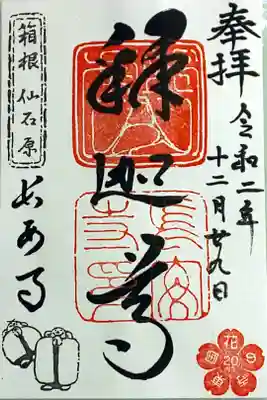 奉拝
令和二年
十二月廿九日
釋迦尊
箱根 仙石原
長安寺